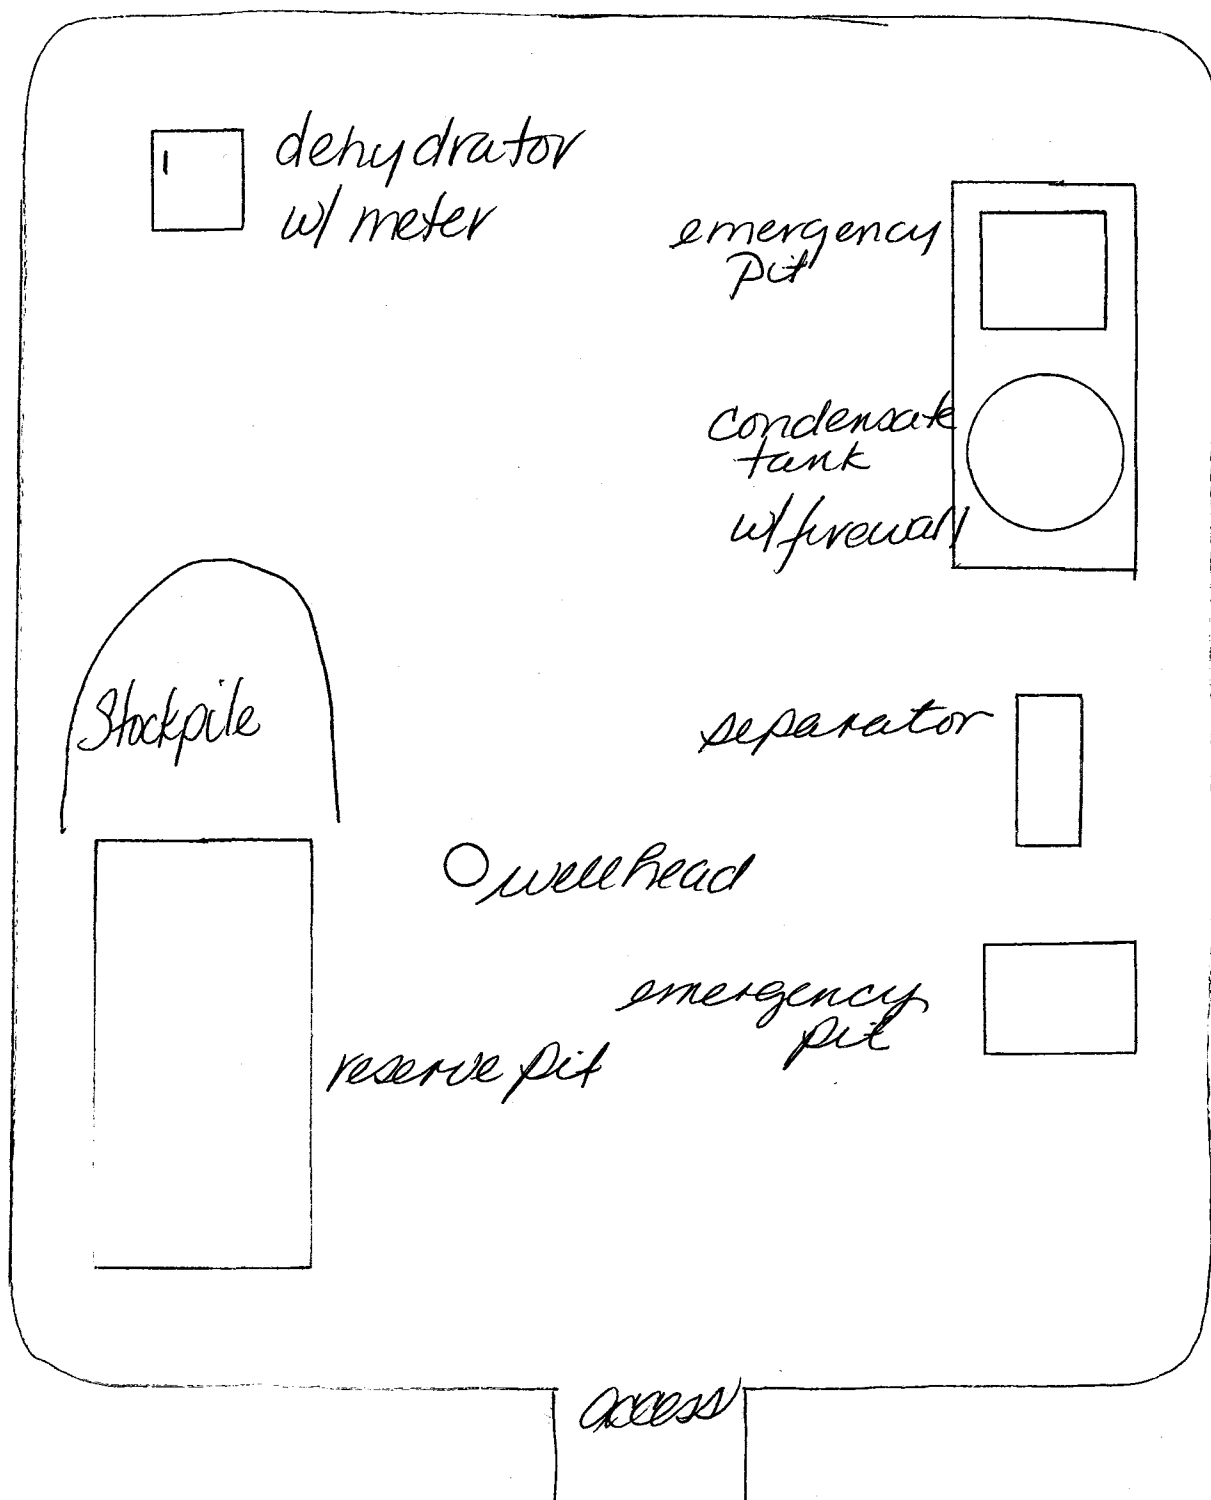 dehydrator
w/ meter
emergency
pit
condensate
tank
w/ firewall
Stockpile
separator
wellhead
emergency
pit
reserve pit
access